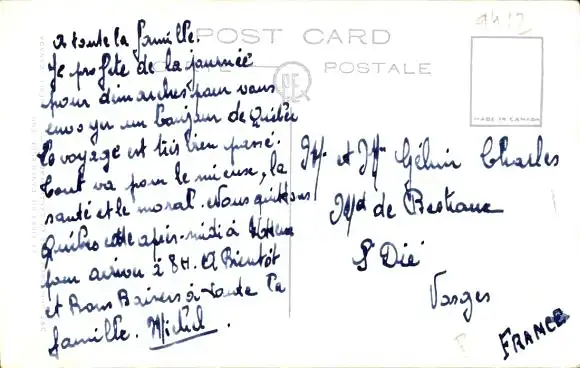 POST CARD
CARTE POSTALE
PE
MADE IN CANADA
9412
A toute la famille.
Je profite de la journée
pour dimanches pour vous
envoyer un bonjour de Québec
Le voyage est très bien passé.
Tout va pour le mieux, la
santé et le moral. Nous quittons
Québec cette après-midi à
pour arriver à 8H. A Bientôt
et Bons Baisers à toute la
famille. Michel.
M. et Mme Gélin Charles
Md de Bestiaux
St Dié
Vosges
FRANCE